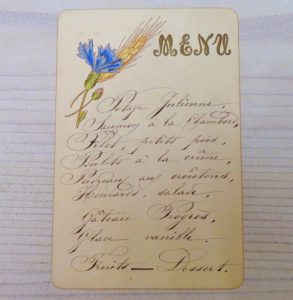 MENU
Potage Julienne,
Saumon à la Chambord,
Filet, petits pois,
Poulets à la crème,
Perdreaux aux croûtons,
Homards, salade,
Gâteau Progrès,
Glace vanille.
Fruits — Dessert.